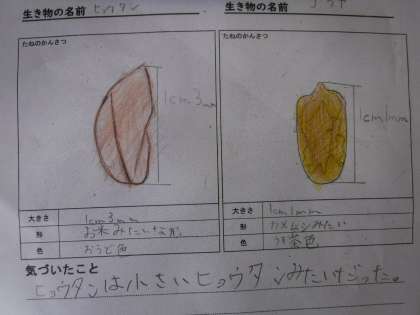 生き物の名前 ヒョウタン
生き物の名前
たねのかんさつ
たねのかんさつ
1cm3mm
1cm1mm
大きさ 1cm3mm
形 お米みたいな形
色 おうど色
大きさ 1cm1mm
形 カメムシみたい
色 うす茶色
気づいたこと
ヒョウタンは小さいヒョウタンみたいだった。